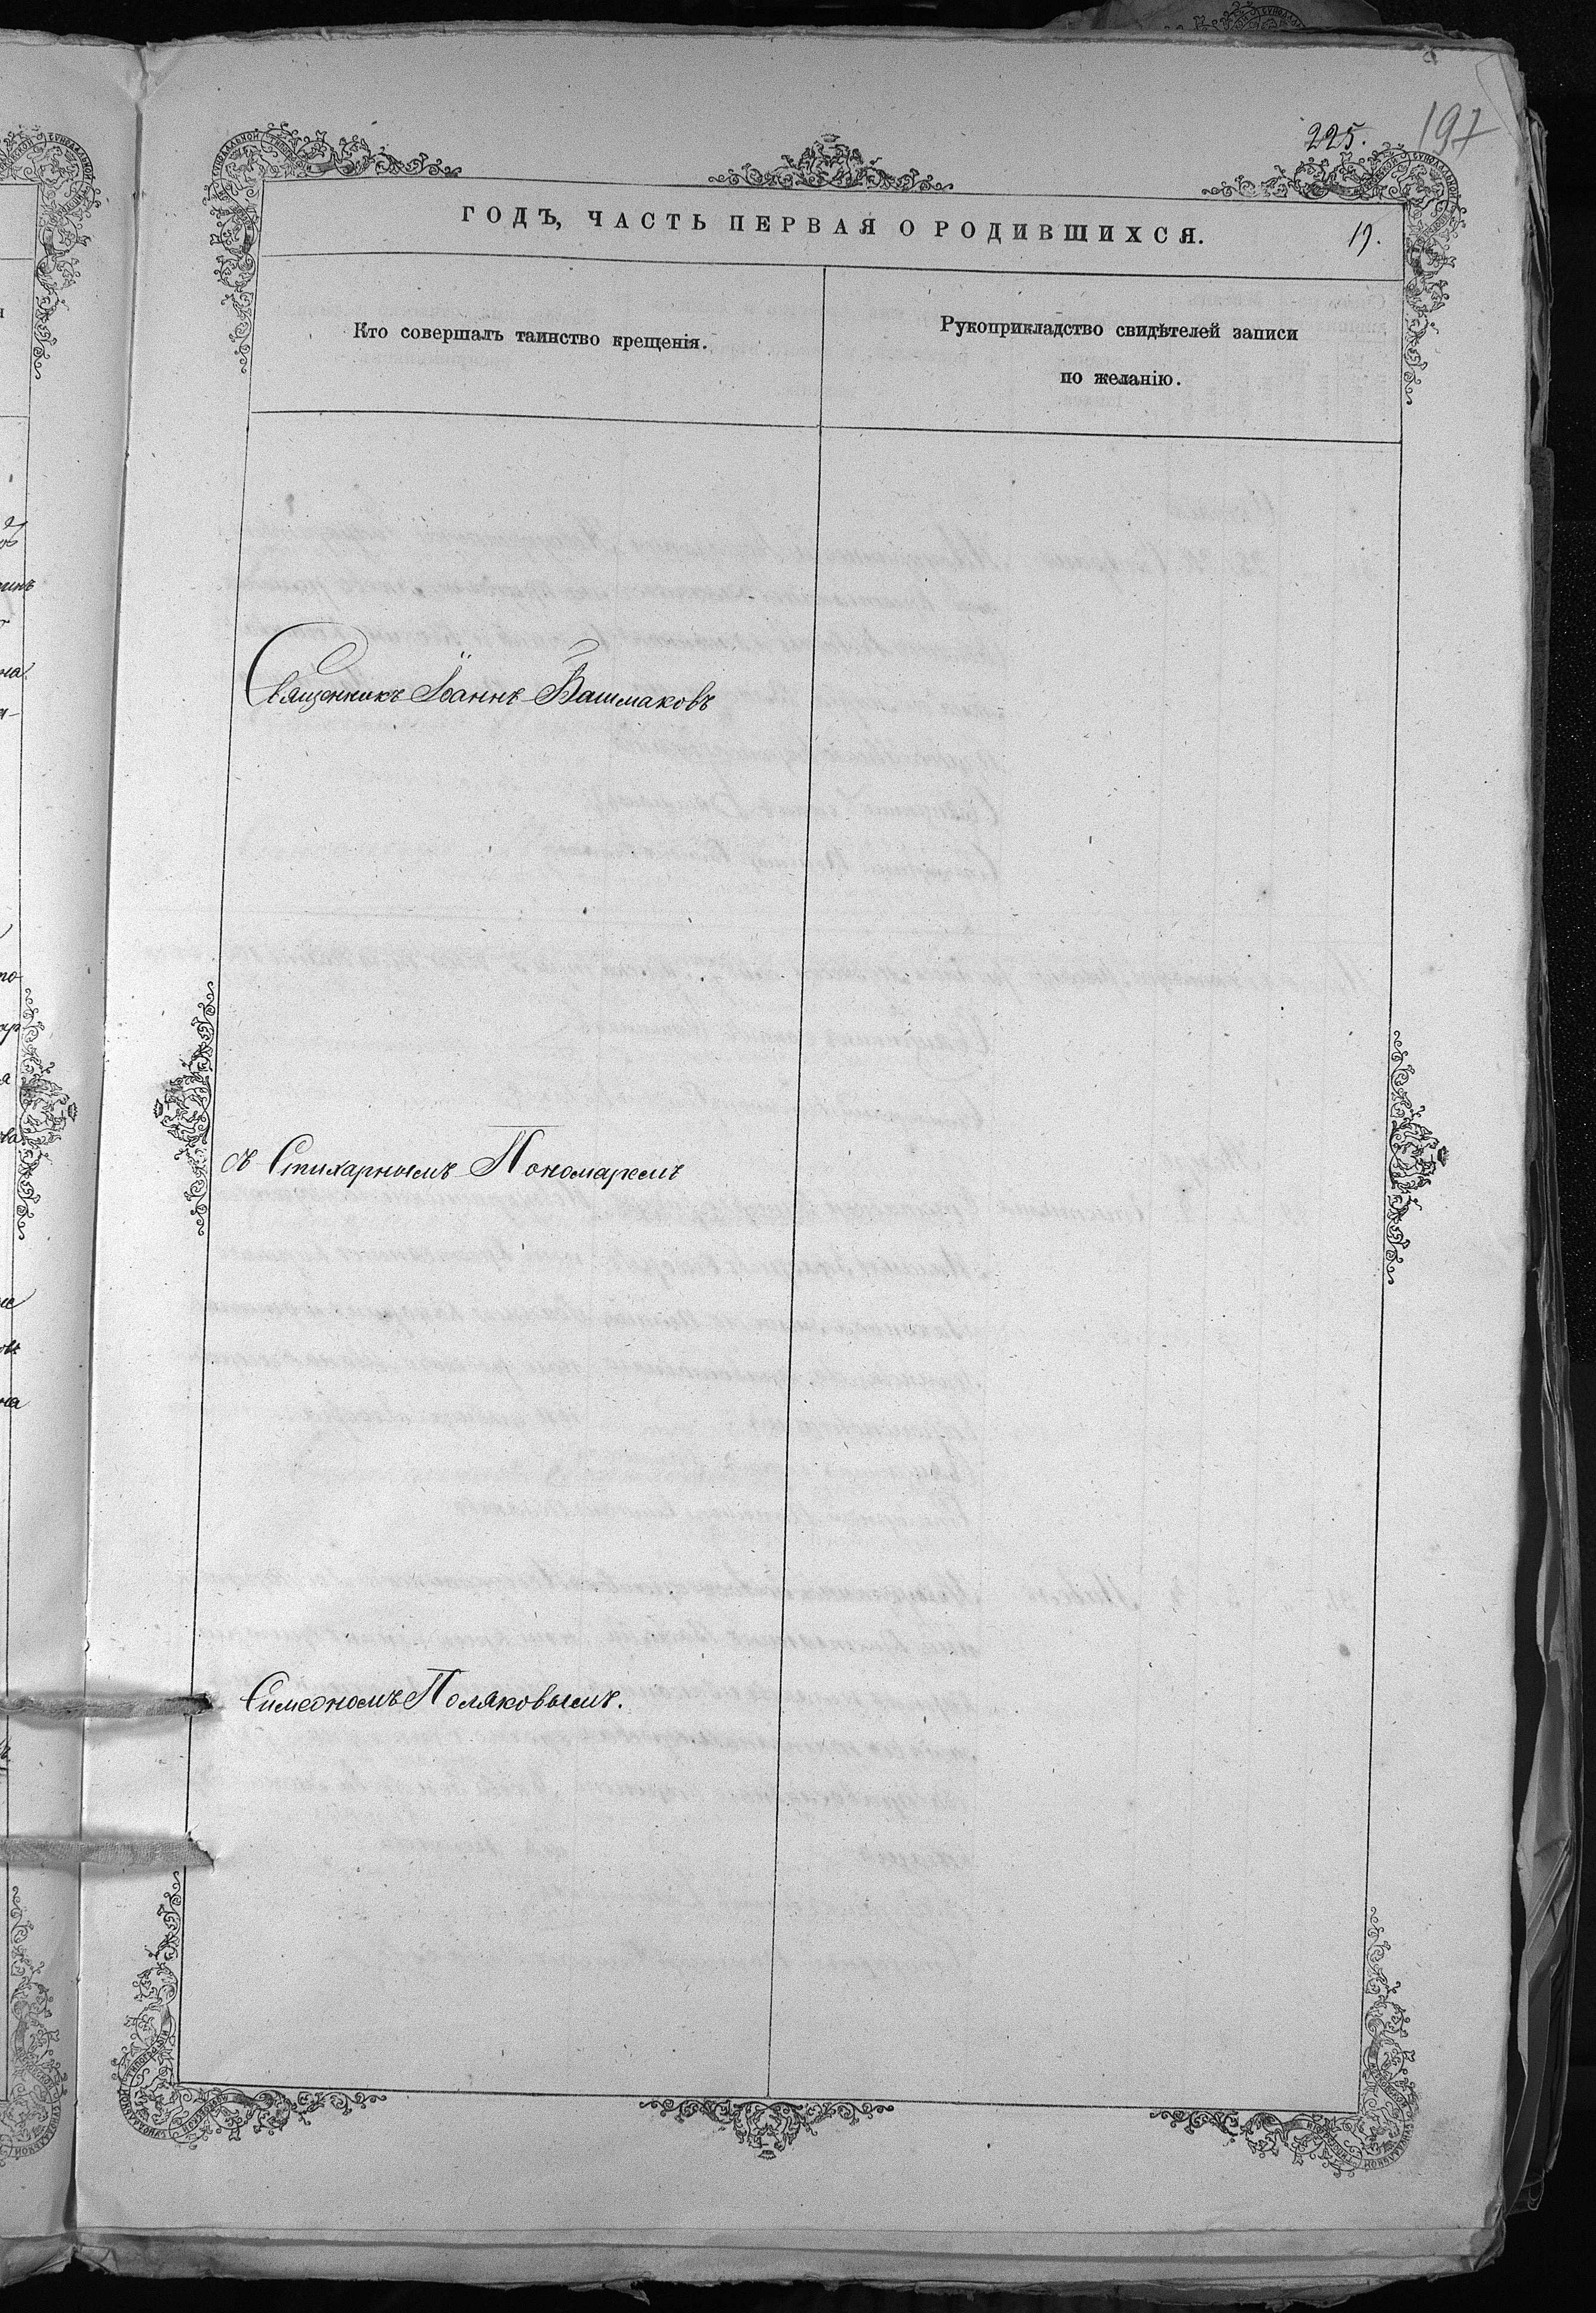 225.
197
ГОДЪ, ЧАСТЬ ПЕРВАЯ О РОДИВШИХСЯ.
19.
Кто совершалъ таинство крещенія.
Рукоприкладство свидѣтелей записи
по желанію.
Священникъ Іоаннъ Башмаковъ
съ Стихарнымъ Пономаремъ
Симеономъ Поляковымъ.